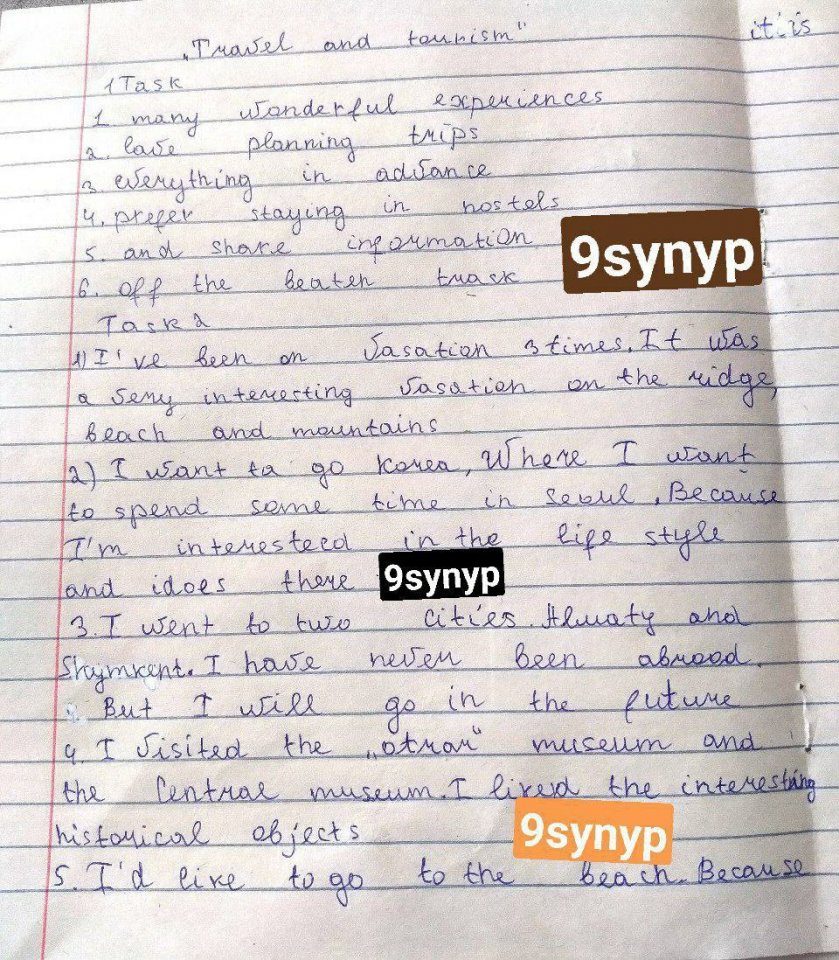 „Travel and tourism" it is
1 Task
1 many wonderful experiences
2. love planning trips
3 everything in advance
4. prefer staying in hostels
5. and share information
9synyp
6. off the beaten track
Task 2
1) I've been on vasation 3 times. It was
a very interesting vasation on the ridge,
beach and mountains
2) I want to go Korea, Where I want
to spend some time in Seoul. Because
I'm interesteed in the life style
and idoes there
9synyp
3. I went to two cities. Almaty and
Shymkent. I have never been abrood.
But I will go in the future
4. I visited the „otrar" museum and
the Central museum. I liked the interesting
historical objects
9synyp
5. I'd like to go to the beach. Because